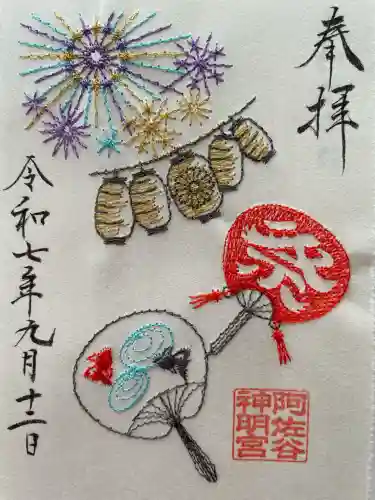 奉拝
祭
令和七年九月十二日
阿佐谷
神明宮